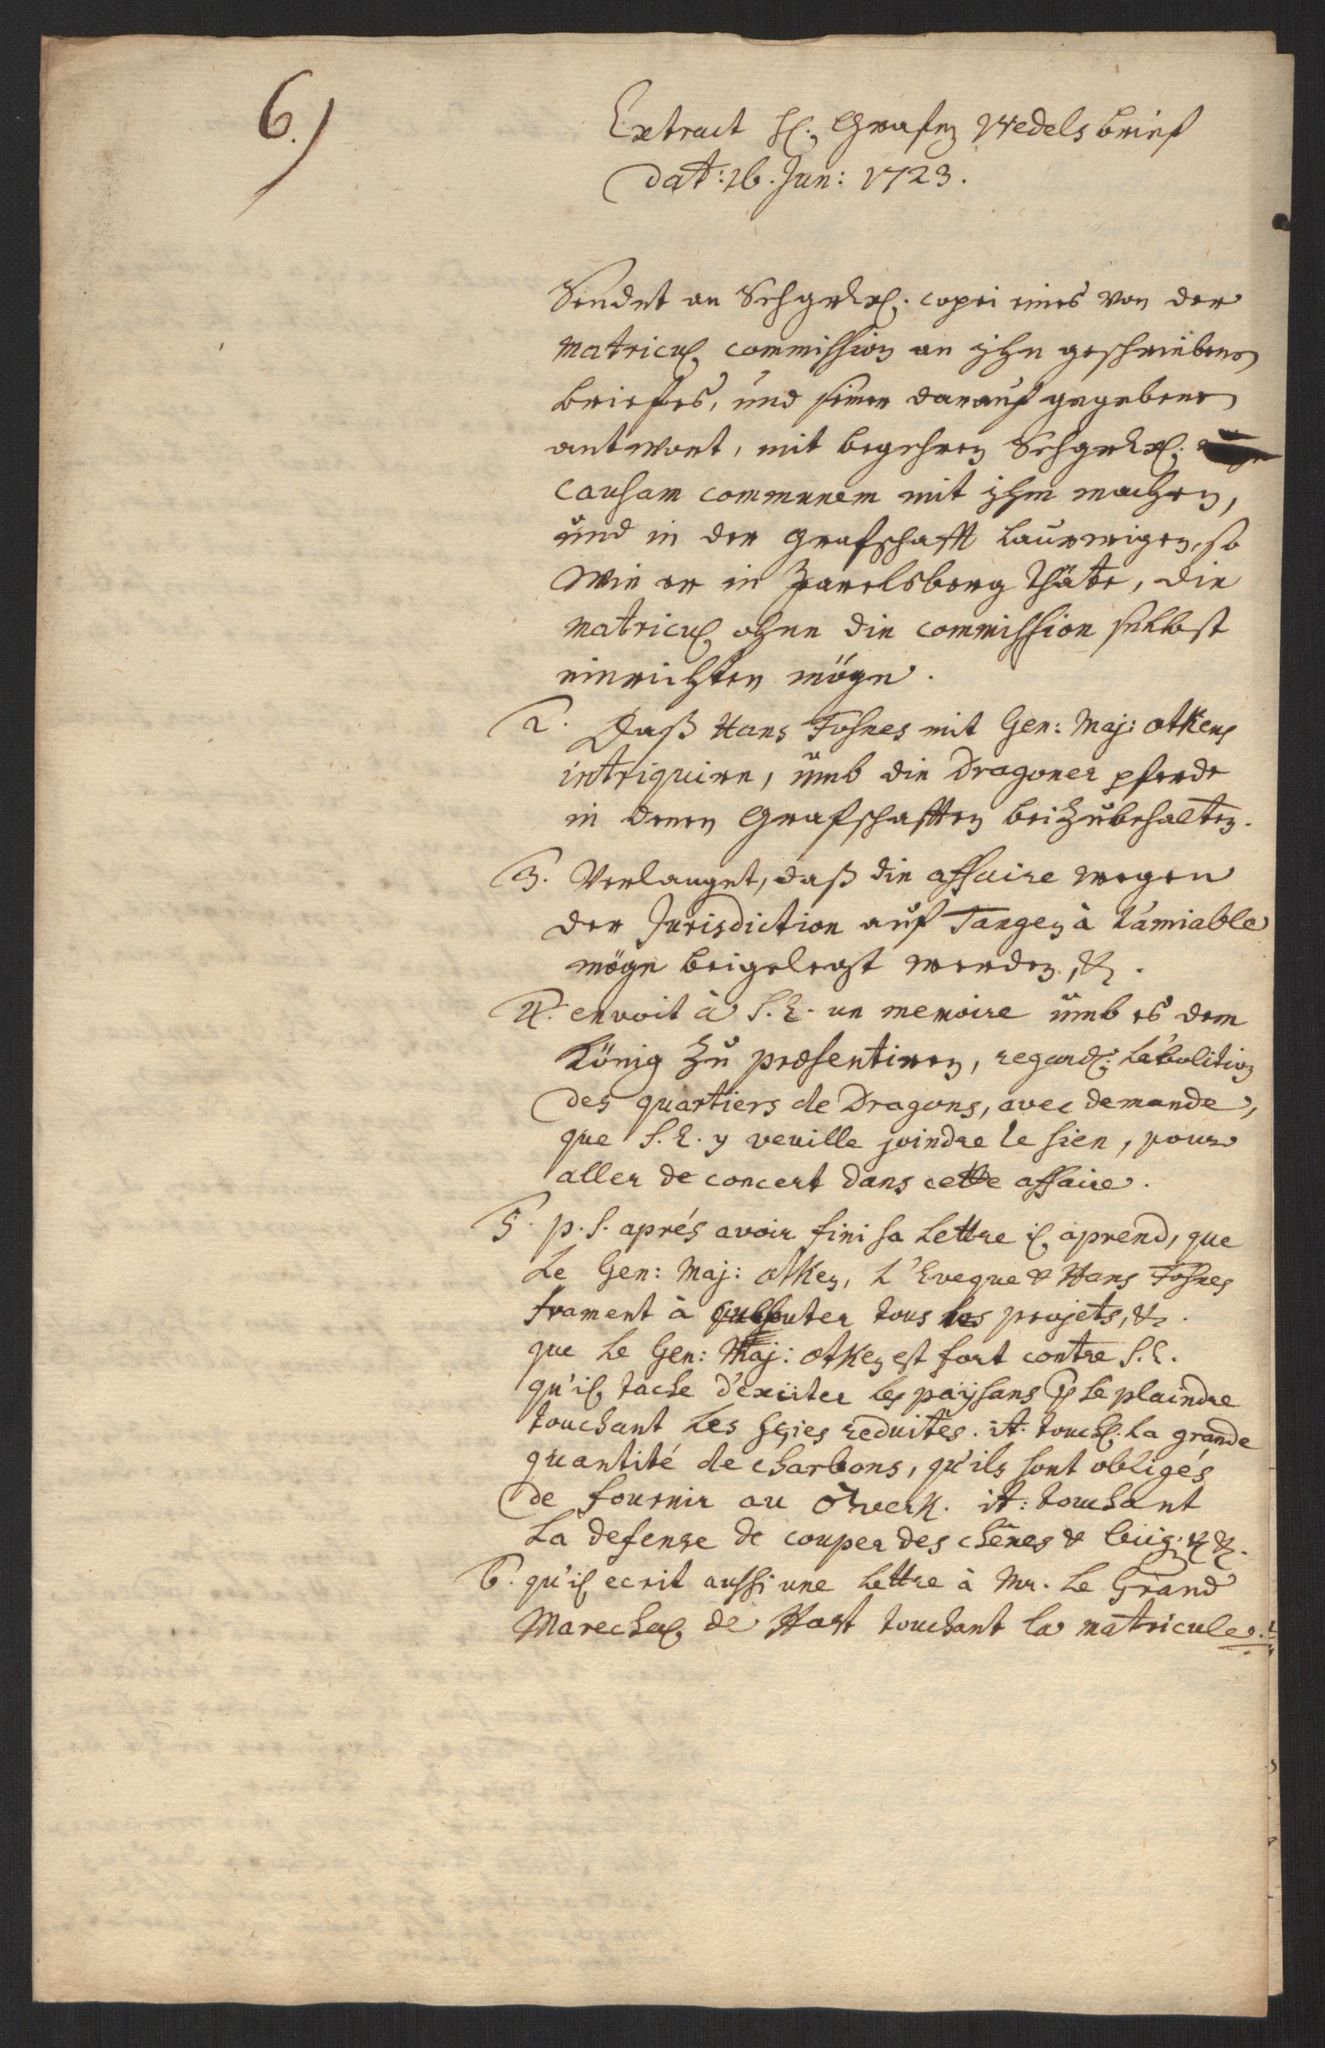 6.)
Extract H. Grafen Wedels brief
dat: 16. Jun: 1723.
Sendet an copei eines von der
Matricul commission an ihn geschriebenen
briefes, und seiner darauf gegebenen
antwort, mit begehren
causam communem mit ihm machen,
und in der Grafschafft Laurwigen, so
wie er in Jarelsberg thäte, die
Matricul ohne die commission selbst
einrichten möge.
2. Daß Hans Fosnes mit Gen: Maj: Otken
intriguire, umb die Dragoner pferde
in denen Grafschafften beizubehalten.
3. Verlanget, daß die affaire wegen
der Jurisdiction auf Tangen à l'amiable
möge beigelegt werden, &c.
4. envoit à S. E. un memoire umb es dem
König zu præsentiren, regard: l'abolition
des quartiers de Dragons, avec demande,
que S. E. y veuille joindre le sien, pour
aller de concert dans cette affaire.
5. p. S. aprés avoir fini sa lettre il aprend, que
le Gen: Maj: Otken, l'Eveque & Hans Fosnes
trament à tous les projets, &c.
que le Gen: Maj: Otken est fort contre S. E.
qu'il tache d'exciter les paÿsans se plaindre
touchant les scies reduites. it. touch: la grande
quantité de charbons, qu'ils sont obligés
de fournir au werk. it: touchant
la defense de couper des chênes & &c.
6. qu'il ecrit aussi une lettre à Mr. le Grand
Marechal de Holst touchant la matricule.